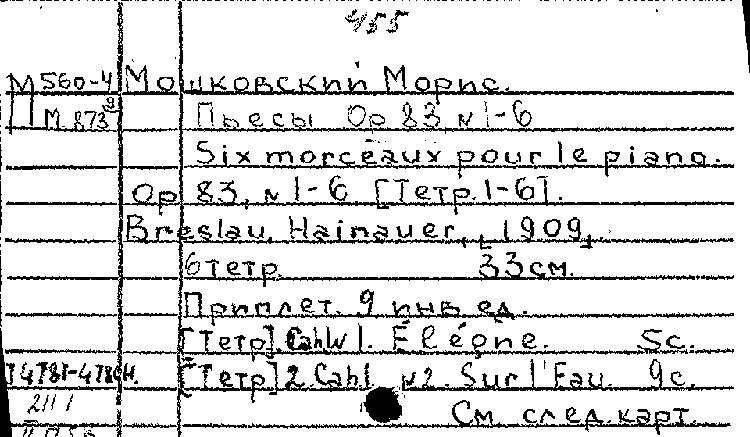 455
М 560-4 Мошковский Морис.
П М.873² Пьесы Ор 83 №1-6
Six morceaux pour le piano.
Op 83, №1-6 [Тетр.1-6].
Breslau, Hainauer, [1909]
6 тетр. 33 см.
Приплет. 9 инв. ед.
[Тетр]. Cah№1. Élégne. 5с.
[Тетр] 2. Cah1 №2. Sur l'Eau 9с.
См. след. карт.